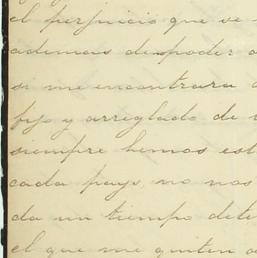 el perjuicio que se
ademas de poder
si me encontrara
fijo y arreglado de
siempre hemos est
cada pays, no nos
da un tiempo dete
el que me quiten